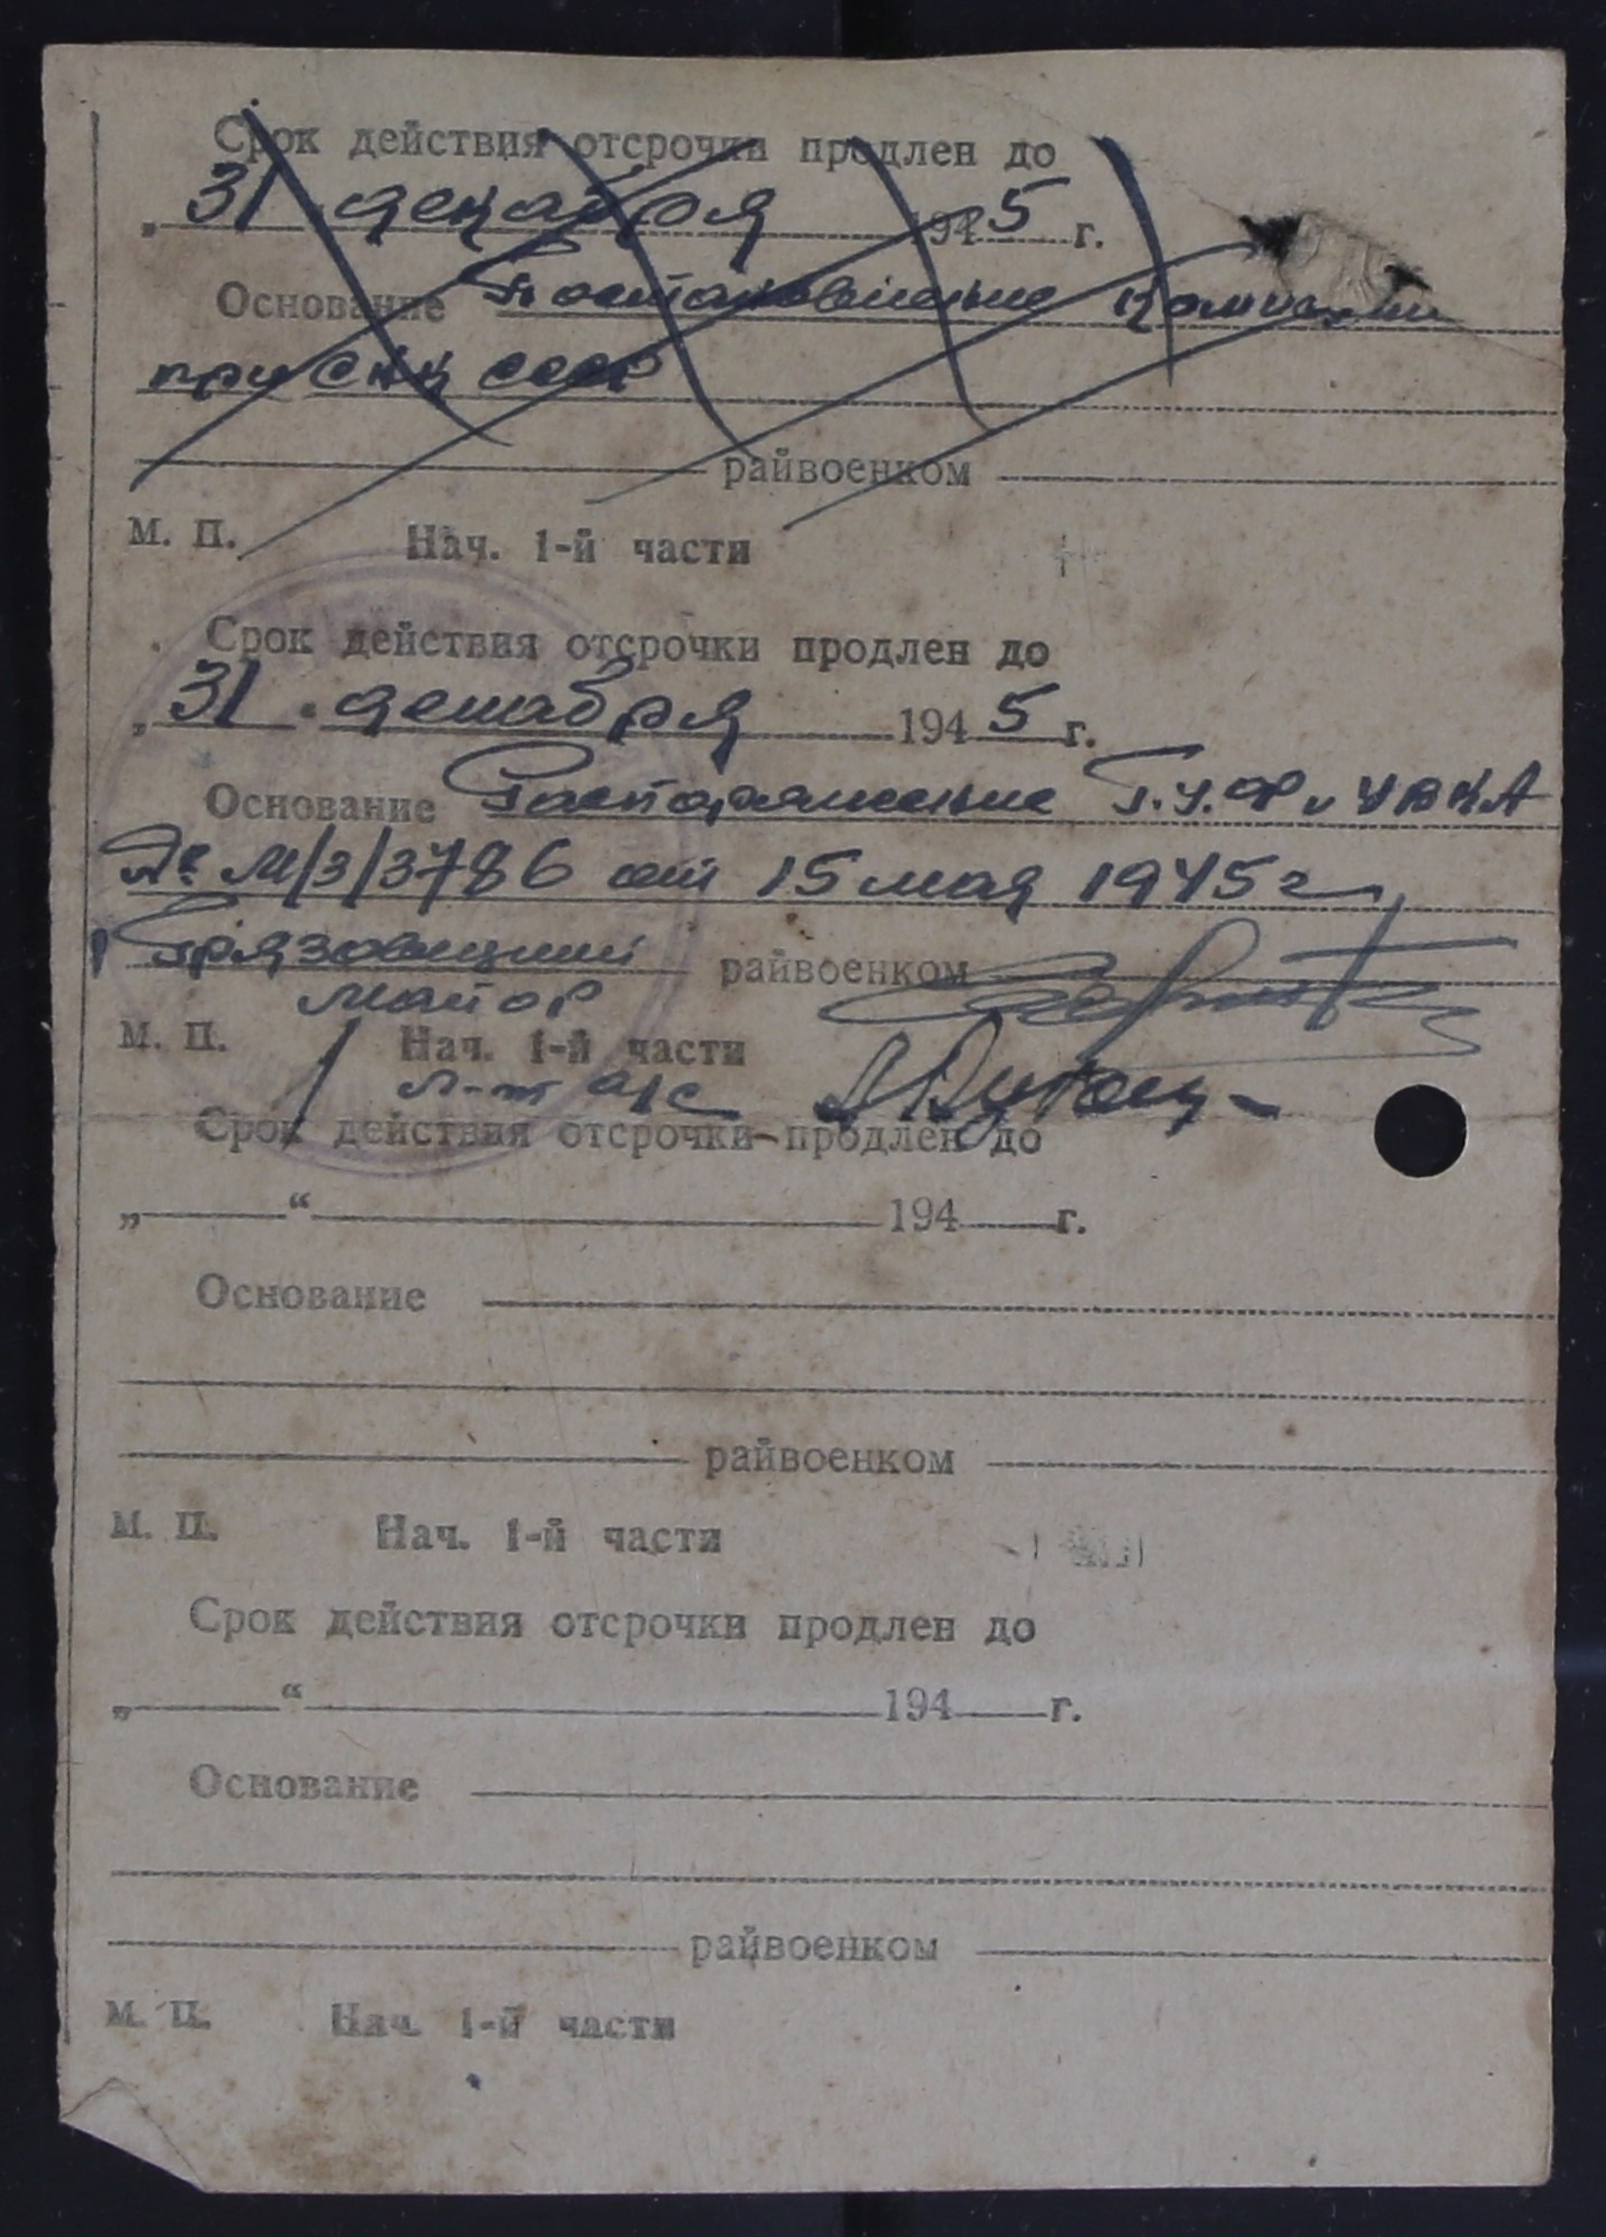 Срок действия отсрочки продлен до
„31" декабря 1945 г.
Основание Постановление комиссии
при СНК СССР
райвоенком
М. П. Нач. 1-й части
Срок действия отсрочки продлен до
„31" декабря 1945 г.
Основание Распоряжение Г.У.Ф. и У В К А
№ М/3/3786 от 15 мая 1945 г
Грязовецкий райвоенком
майор
М. П. Нач. 1-й части
л-т а/с
Срок действия отсрочки продлен до
„ “ 194 г.
Основание
райвоенком
М. П. Нач. 1-й части
Срок действия отсрочки продлен до
„ “ 194 г.
Основание
райвоенком
М. П. Нач. 1-й части